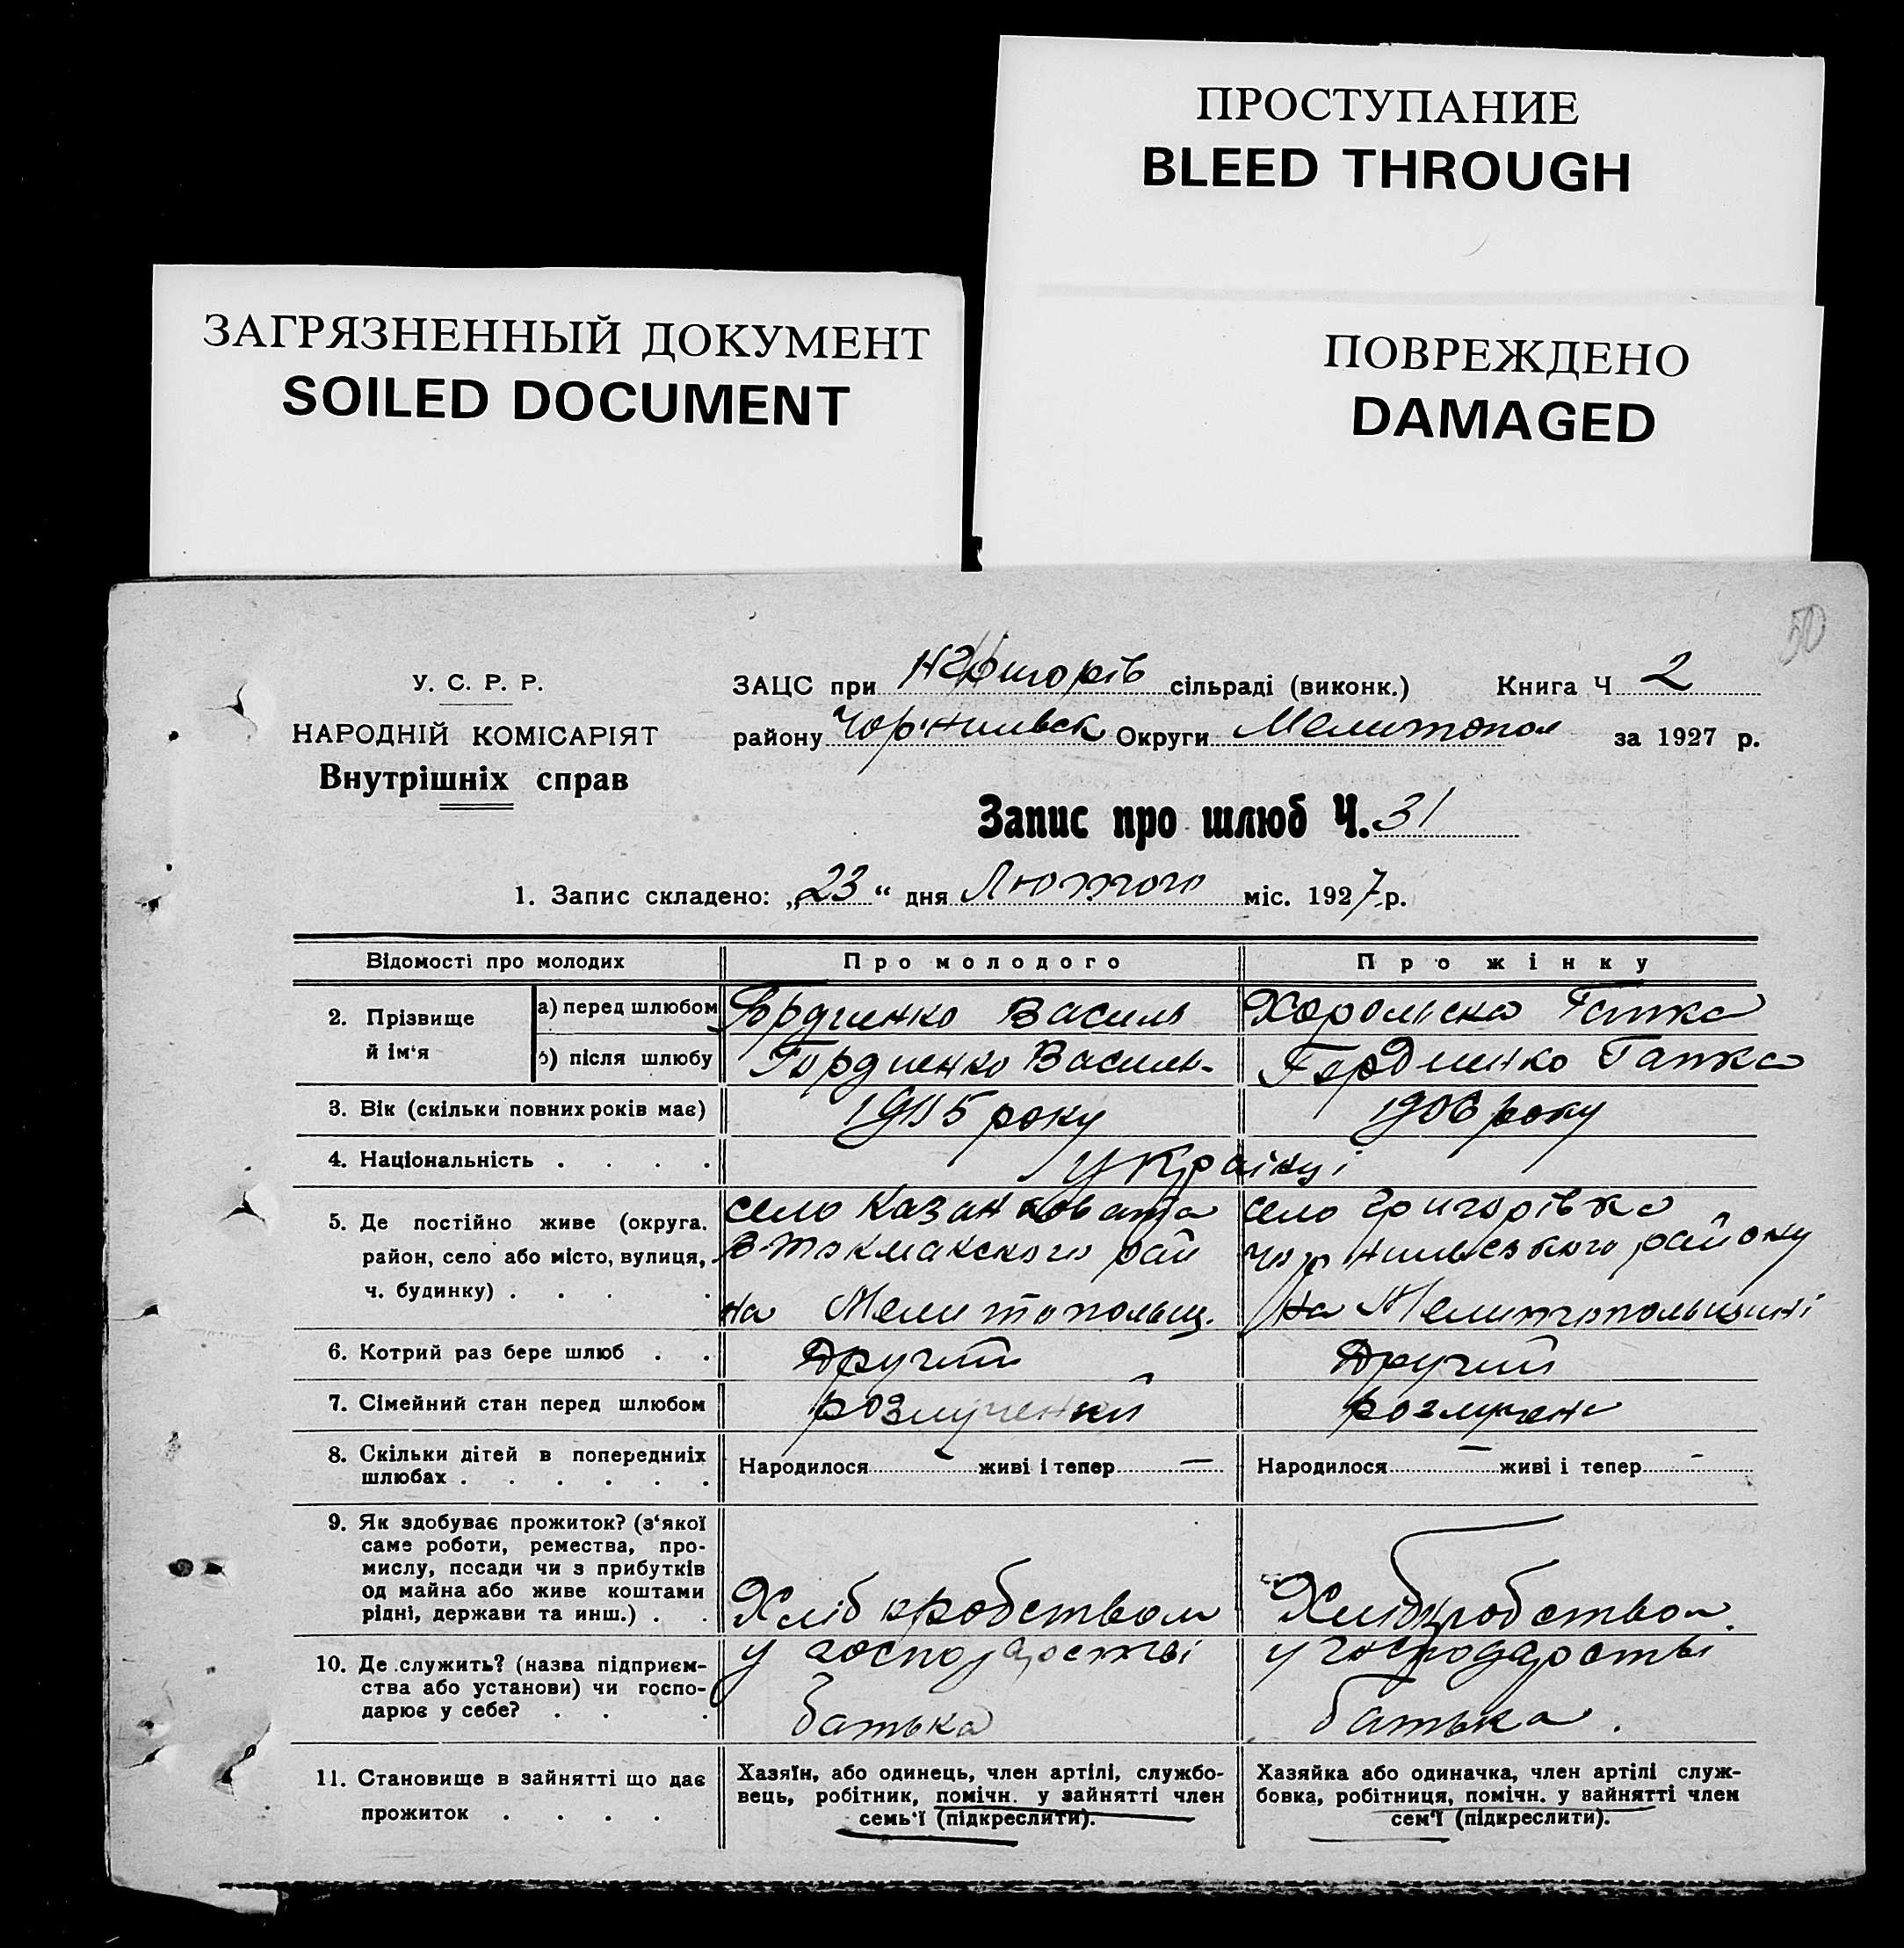 ПРОСТУПАНИЕ
BLEED THROUGH
ЗАГРЯЗНЕННЫЙ ДОКУМЕНТ
SOILED DOCUMENT
ПОВРЕЖДЕНО
DAMAGED
50
У. С. Р. Р.
НАРОДНІЙ КОМІСАРІЯТ
Внутрішніх справ
ЗАЦС при сільраді (виконк.) Книга Ч 2
району Округи Мелитопол за 1927 р.
Запис про шлюб Ч. 31
1. Запис складено: „23“ дня Лютого міс. 1927 р.
Відомості про молодих
Про молодого
Про жінку
2. Прізвище й ім‘я
а) перед шлюбом
Гордиенко Василь
Ганка
б) після шлюбу
Гордиенко Василь
Гордиенко Ганка
3. Вік (скільки повних років має)
року
1906 року
4. Національність . . . .
українці
5. Де постійно живе (округа.
район, село або місто, вулиця,
ч. будинку) . . . .
село Казанковата
В-Токмакского рай
на Мелитопольщ.
село Григорівка
району
на Мелитопольщині
6. Котрий раз бере шлюб . .
Другий
Другий
7. Сімейний стан перед шлюбом
розлучений
розлучена
8. Скільки дітей в попередниіх
шлюбах . . . . . .
Народилося — живі і тепер —
Народилося — живі і тепер —
9. Як здобуває прожиток? (з‘якої
саме роботи, ремества, про-
мислу, посади чи з прибутків
од майна або живе коштами
рідні, держави та инш.) . .
Хліборобством
Хліборобством
10. Де служить? (назва підприєм-
ства або установи) чи госпо-
дарює у себе? . . .
у господарстві
батька
у господарстві
батька.
11. Становище в зайнятті що дає
прожиток . . . .
Хазяїн, або одинець, член артілі, службо-
вець, робітник, помічн. у зайнятті член
семь‘ї (підкреслити).
Хазяйка або одиначка, член артілі служ-
бовка, робітниця, помічн. у зайнятті член
сем‘ї (підкреслити).